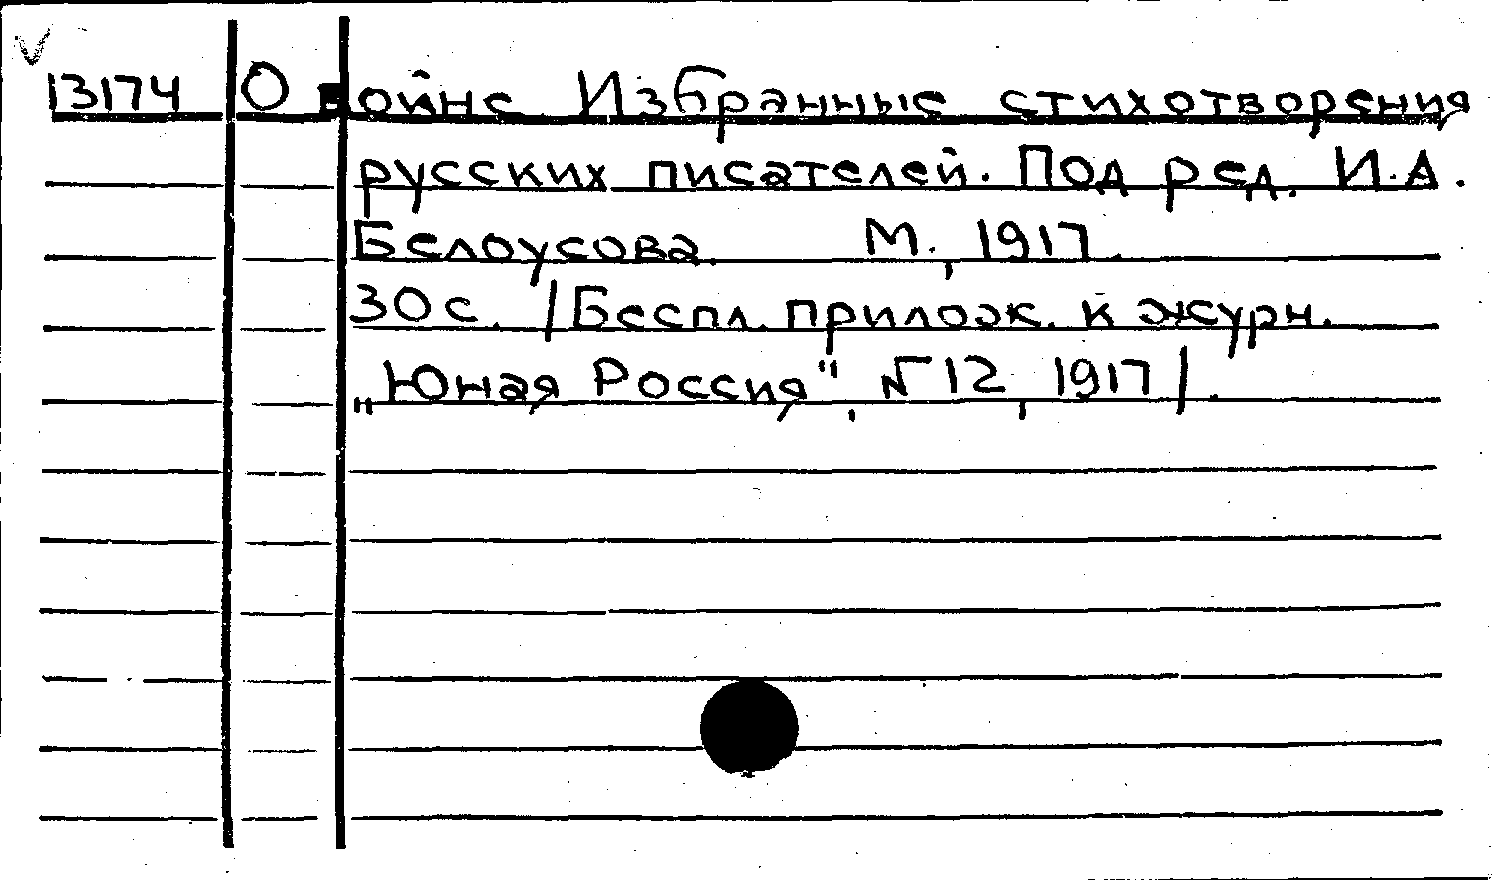 13174 О войне. Избранные стихотворения
русских писателей. Под ред. И.А.
Белоусова. М., 1917.
30 с. /Беспл. прилож. к журн.
„Юная Россия", № 12, 1917/.